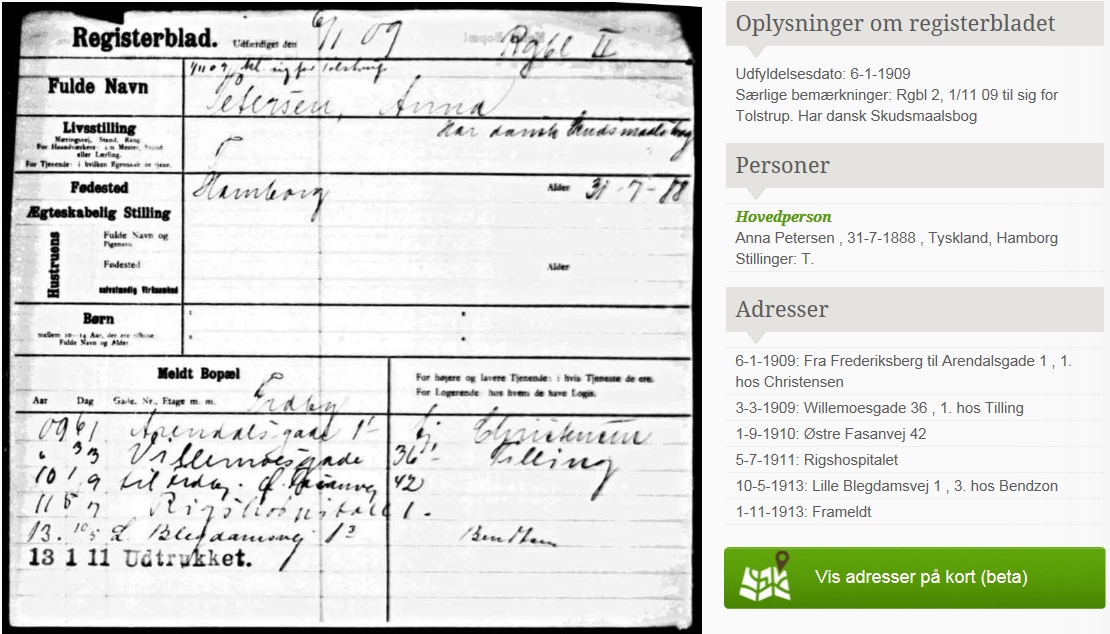 Registerblad. Udfærdiget den 6/1 09 Rgbl II
Fulde Navn
1/11 09 til sig for Tolstrup
Petersen, Anna
Livsstilling
Næringsvej, Stand, Rang
For Haandværkere: om Mester, Svend
eller Lærling.
For Tjenende: i hvilken Egenskab de tjene.
Har dansk Skudsmaalsbog
T
Fødested
Hamborg
Alder 31-7-88
Ægteskabelig Stilling
Hustruens
Fulde Navn og
Pigenavn
Fødested
Alder
selvstændig Virksomhed
Børn
mellem 10-14 Aar, der ere tilhuse
Fulde Navn og Alder
Meldt Bopæl
For højere og lavere Tjenende: i hvis Tjeneste de ere.
For Logerende: hos hvem de have Logis.
Aar Dag Gade, Nr., Etage m. m.
Frdbg
09 6/1 Arendalsgade 1¹ Christensen
" 3/3 Villemoesgade 36¹ Tilling
10 1/9 til Frdbg. Ø. Fasanvej 42
11 5/7 Rigshospitalet.
13. 10/5 L. Blegdamsvej 1³ Bendtzen
13 1 11 Udtrukket.
Oplysninger om registerbladet
Udfyldelsesdato: 6-1-1909
Særlige bemærkninger: Rgbl 2, 1/11 09 til sig for
Tolstrup. Har dansk Skudsmaalsbog
Personer
Hovedperson
Anna Petersen , 31-7-1888 , Tyskland, Hamborg
Stillinger: T.
Adresser
6-1-1909: Fra Frederiksberg til Arendalsgade 1 , 1.
hos Christensen
3-3-1909: Willemoesgade 36 , 1. hos Tilling
1-9-1910: Østre Fasanvej 42
5-7-1911: Rigshospitalet
10-5-1913: Lille Blegdamsvej 1 , 3. hos Bendzon
1-11-1913: Frameldt
Vis adresser på kort (beta)